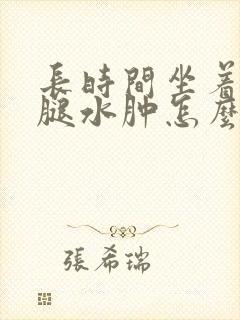 長時間坐着
腿水肿怎麼
張希瑞